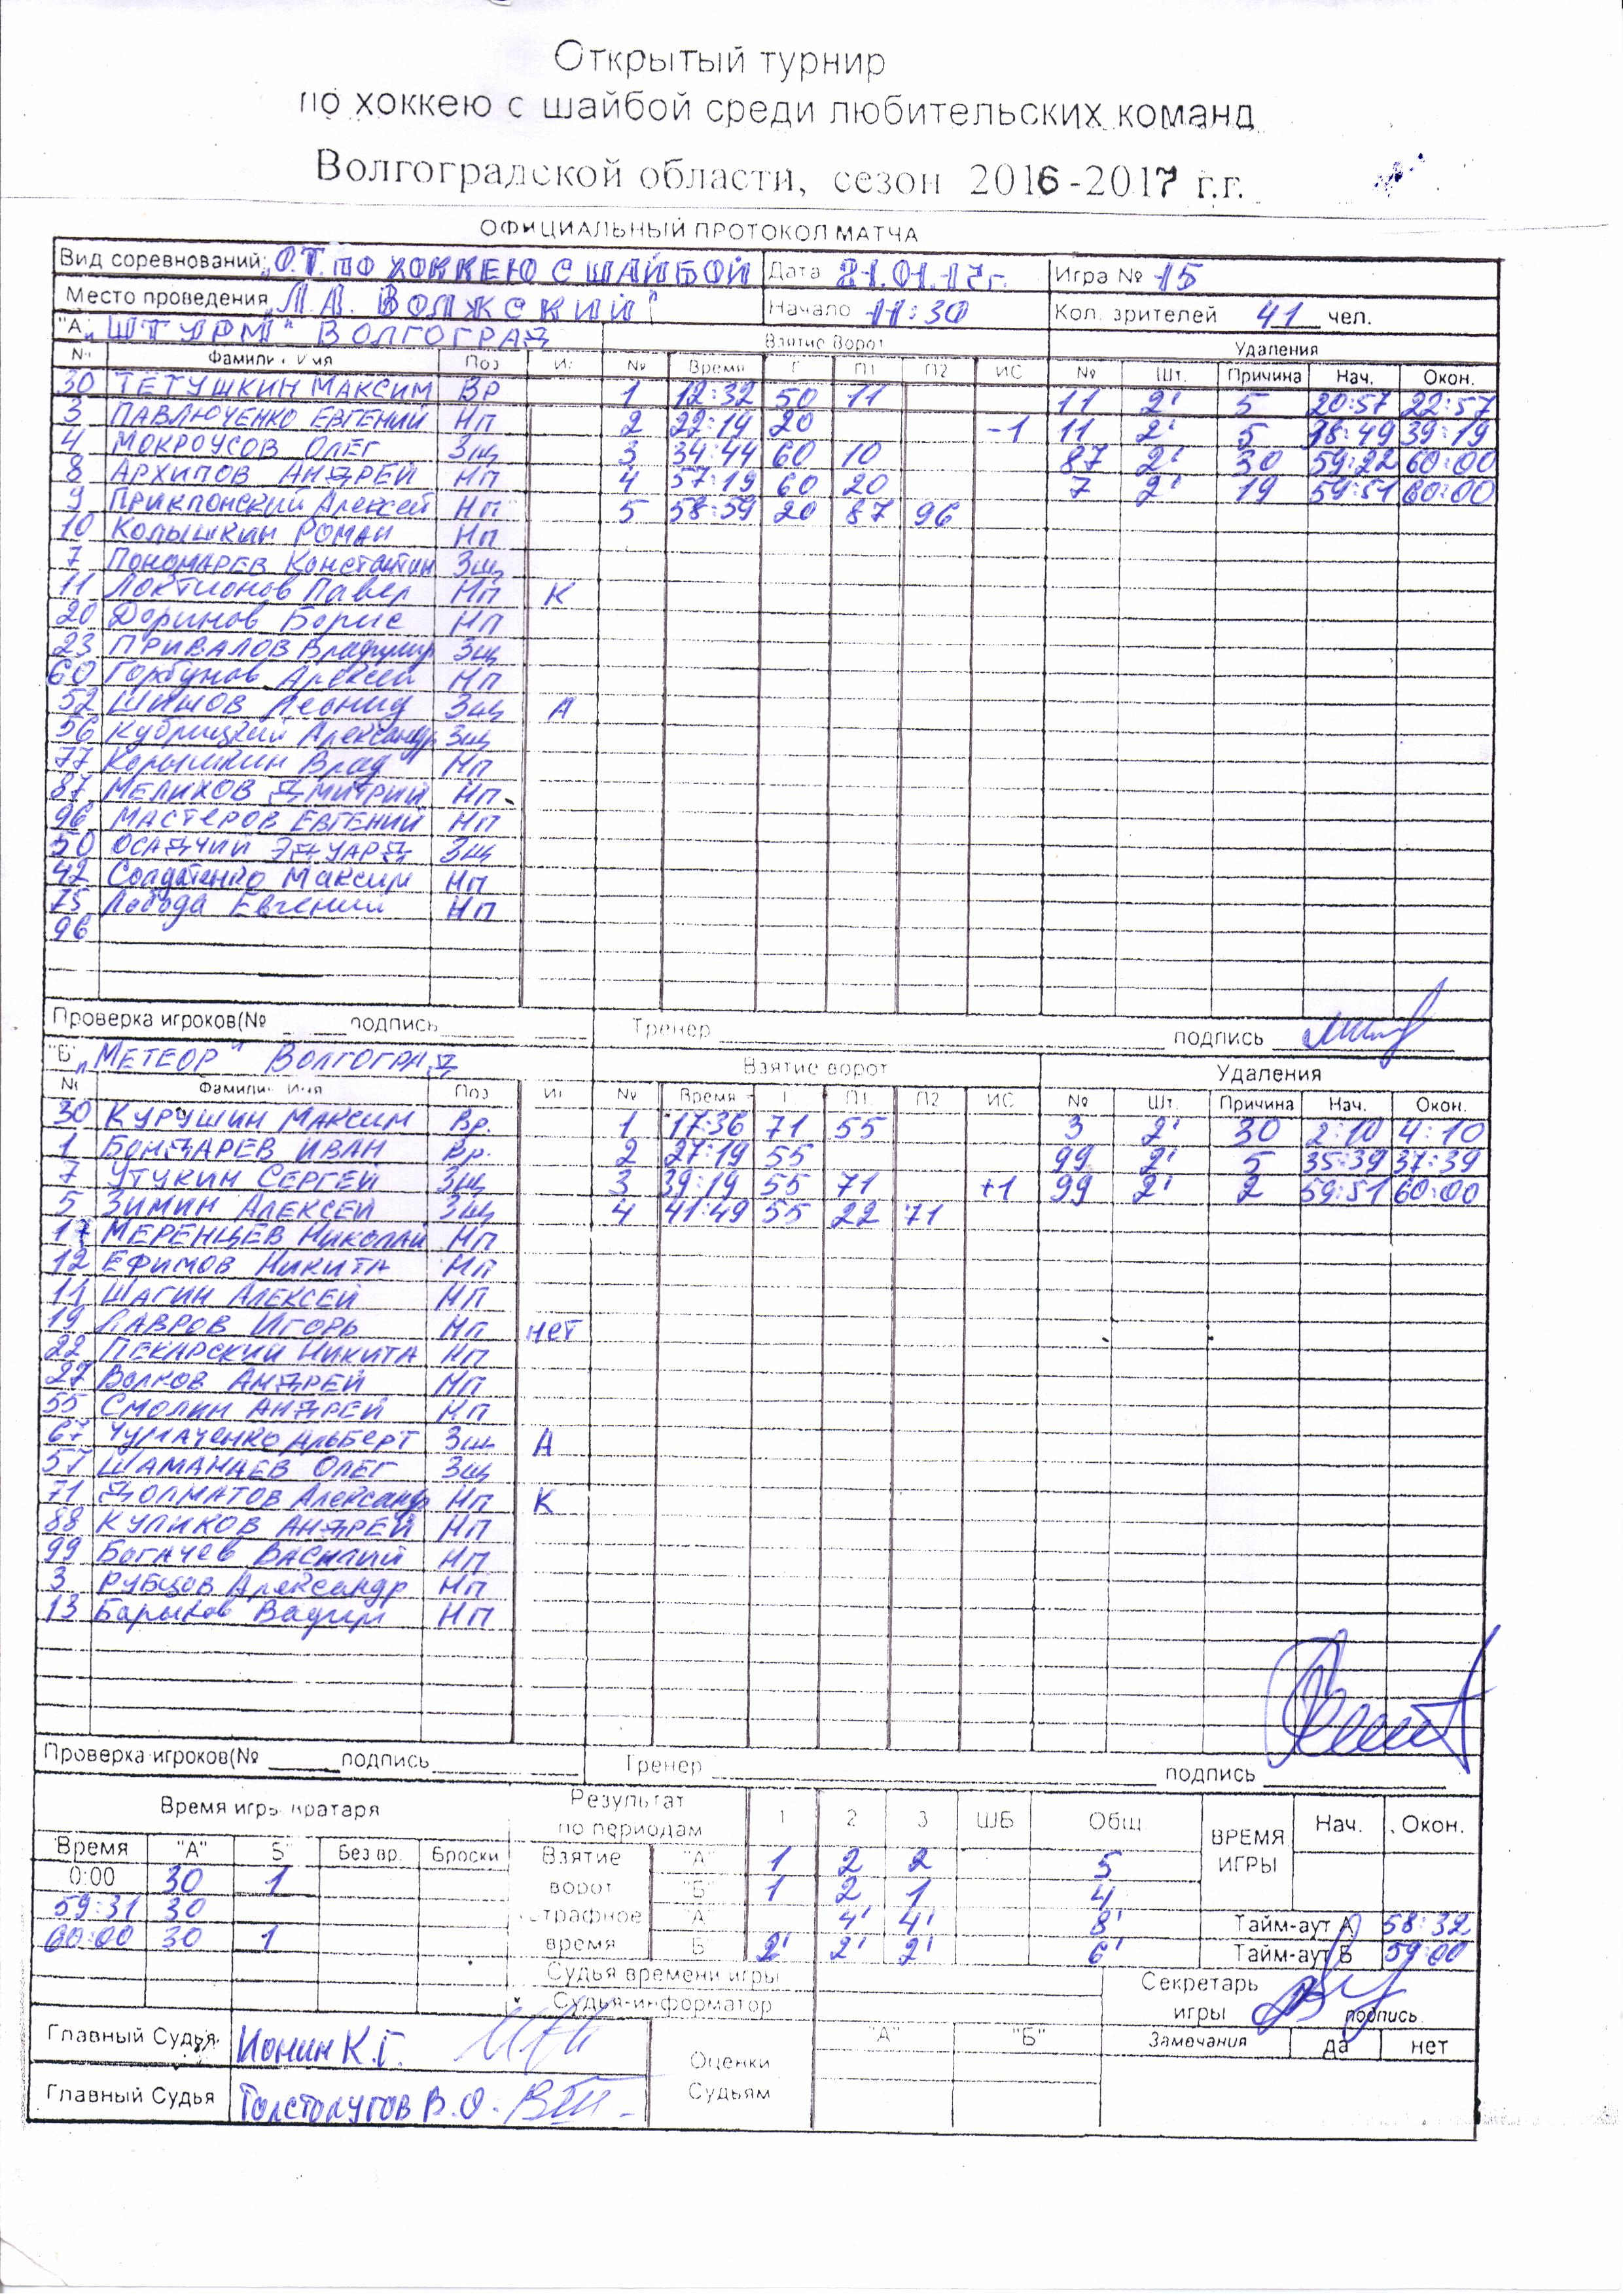 Открытый турнир
по хоккею с шайбой среди любительских команд
Волгоградской области, сезон 2016-2017 г.г.
ОФИЦИАЛЬНЫЙ ПРОТОКОЛ МАТЧА
Вид соревнований: О.Т. ПО ХОККЕЮ С ШАЙБОЙ Дата 21.01.17г. Игра № 15
Место проведения „Л.А. ВОЛЖСКИЙ" Начало 11:30 Кол. зрителей 41 чел.
"А" „ШТУРМ" ВОЛГОГРАД Взятие ворот Удаления
№ Фамилия Имя Поз И Nº Время Г П1 П2 ИС № Шт. Причина Нач. Окон.
30 ТЕТУШКИН МАКСИМ ВР 1 12:32 50 11 11 2' 5 20:57 22:57
3 ПАВЛЮЧЕНКО ЕВГЕНИЙ НП 2 22:14 20 -1 11 2' 5 38:49 39:19
4 МОКРОУСОВ ОЛЕГ Зщ 3 34:44 60 10 87 2' 30 59:22 60:00
8 АРХИПОВ АНДРЕЙ НП 4 57:19 60 20 7 2' 19 59:51 60:00
9 Приклонский Алексей НП 5 58:59 20 87 96
10 Колышкин Роман НП
7 Пономарев Константин Зщ
11 Локтионов Павел НП К
20 Доринов Борис НП
23 ПРИВАЛОВ Владимир Зщ
60 Горбунов Алексей НП
52 Шишов Леонид Зщ А
56 Кубрицкий Александр Зщ
77 Колышкин Влад НП
87 МЕЛИХОВ ДМИТРИЙ НП
96 МАСТЕРОВ ЕВГЕНИЙ НП
50 ОСАДЧИЙ ЭДУАРД Зщ
42 Солдатенко Максим НП
75 Лобода Евгений НП
96
Проверка игроков(№ подпись Тренер подпись
"Б" „МЕТЕОР" ВОЛГОГРАД Взятие ворот Удаления
№ Фамилия Имя Поз И Nº Время Г П1 П2 ИС № Шт. Причина Нач. Окон.
30 КУРУШИН МАКСИМ Вр. 1 17:36 71 55 3 2' 30 2:10 4:10
1 БОНДАРЕВ ИВАН Вр. 2 27:19 55 99 2' 5 35:39 37:39
7 УТУКИН СЕРГЕЙ Зщ 3 39:19 55 71 +1 99 2' 2 59:51 60:00
5 ЗИМИН АЛЕКСЕЙ Зщ 4 41:49 55 22 71
17 МЕРЕНЦЕВ НИКОЛАЙ НП
12 ЕФИМОВ НИКИТА НП
11 ШАГИН АЛЕКСЕЙ НП
19 ЛАВРОВ ИГОРЬ НП нет
22 ПЕКАРСКИЙ НИКИТА НП
27 ВОЛКОВ АНДРЕЙ НП
55 СМОЛИН АНДРЕЙ НП
67 ЧУМАЧЕНКО АЛЬБЕРТ Зщ А
57 ШАМАНАЕВ ОЛЕГ Зщ
71 ДОЛМАТОВ Александр НП К
88 КУЛИКОВ АНДРЕЙ НП
99 БОГАЧЕВ ВАСИЛИЙ НП
3 РУБЦОВ Александр НП
13 Барыков Вадим НП
Проверка игроков(№ подпись Тренер подпись
Время игры вратаря Результат по периодам 1 2 3 ШБ Общ ВРЕМЯ ИГРЫ Нач. Окон.
Время "А" Б" Без вр. Броски Взятие "А" 1 2 2 5
0:00 30 1 ворот "Б" 1 2 1 4
59:31 30 штрафное "А" 4' 4' 8' Тайм-аут А 58:32
60:00 30 1 время Б 2' 2' 2' 6' Тайм-аут Б 59:00
Судья времени игры Секретарь
Судья-информатор игры подпись
Главный Судья Ионин К.Г. Оценки Судьям "А" "Б" Замечания да нет
Главный Судья Толстопутов В.О.